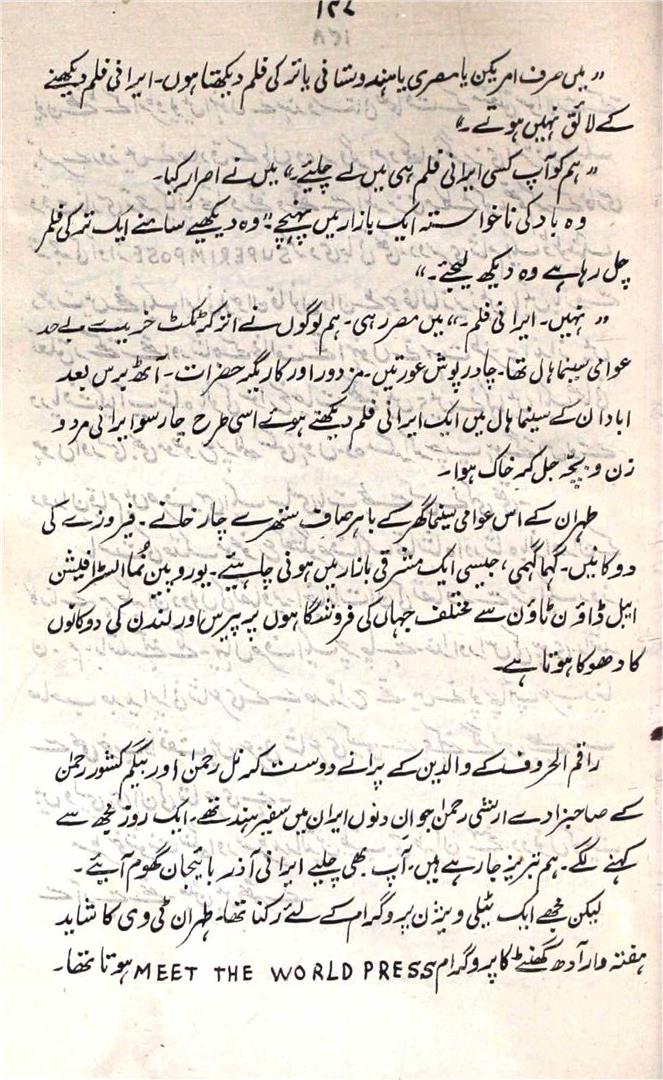 ۱۴۷
"میں صرف امریکن یا مصری یا ہندوستانی یا ٹرکی فلم دیکھتا ہوں۔ ایرانی فلم دیکھنے
کے لائق نہیں ہوتے۔"
"ہم کو آپ کسی ایرانی فلم ہی میں لے چلیئے۔" میں نے اصرار کیا۔
وہ بادلِ ناخواستہ ایک بازار میں پہنچے۔ "وہ دیکھیے سامنے ایک ترکی فلم
چل رہا ہے وہ دیکھ لیجئے۔"
"نہیں۔ ایرانی فلم۔" میں مصر رہی۔ ہم لوگوں نے اتر کر ٹکٹ خریدے بے حد
عوامی سینما ہال تھا۔ چادر پوش عورتیں۔ مزدور اور کاریگر حضرات۔ آٹھ برس بعد
ابادان کے سینما ہال میں ایک ایرانی فلم دیکھتے ہوئے اسی طرح چار سو ایرانی مرد و
زن و بچّہ جل کر خاک ہوا۔
طہران کے اس عوامی سینما گھر کے باہر صاف ستھرے چار خانے۔ فیروزے کی
دوکانیں۔ گہما گہمی، جیسی ایک مشرقی بازار میں ہونی چاہیئے۔ یوروپین نُما الٹرا فیشن
ایبل ڈاؤن ٹاؤن سے مختلف جہاں کی فروشگاہوں پر پیرس اور لندن کی دوکانوں
کا دھوکا ہوتا ہے۔
راقم الحروف کے والدین کے پرانے دوست کرنل رحمٰن اور بیگم کشور رحمٰن
کے صاحبزادے ارتضی رحمٰن جو ان دنوں ایران میں سفیر ہند تھے۔ ایک روز مجھ سے
کہنے لگے۔ ہم تبریز جا رہے ہیں۔ آپ بھی چلیے ایرانی آذر بائیجان گھوم آیئے۔
لیکن مجھے ایک ٹیلی ویژن پروگرام کے لئے رکنا تھا۔ طہران ٹی وی کا شاید
ہفتہ وار آدھ گھنٹے کا پروگرام MEET THE WORLD PRESS ہوتا تھا۔